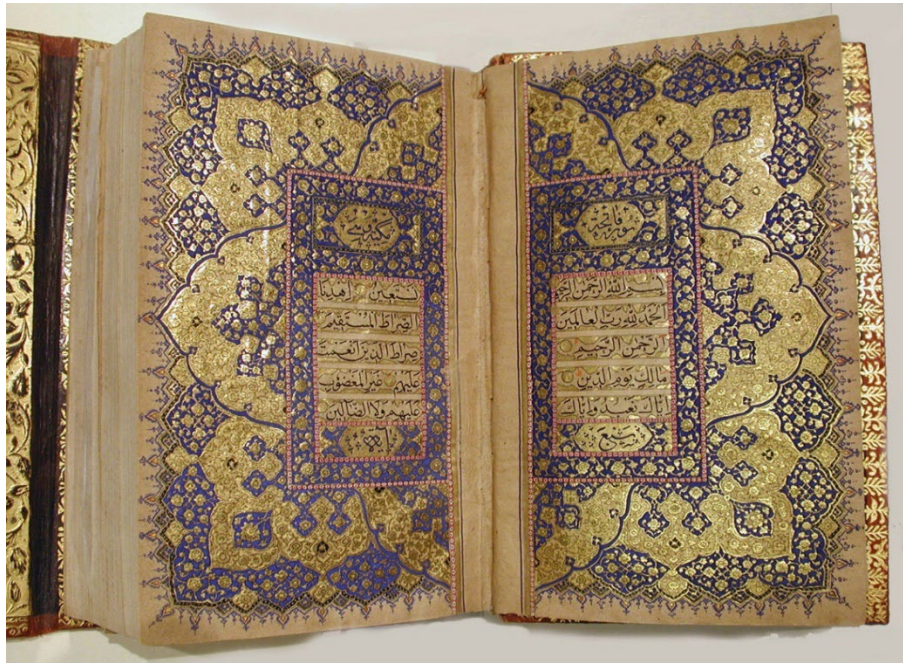 سورة فاتحة
بسم الله الرحمن الرحيم
الحمد لله رب العالمين
الرحمن الرحيم
مالك يوم الدين
إياك نعبد وإياك
سبع
مكية وهي
نستعين اهدنا
الصراط المستقيم
صراط الذين أنعمت
عليهم غير المغضوب
عليهم ولا الضالين
آيات